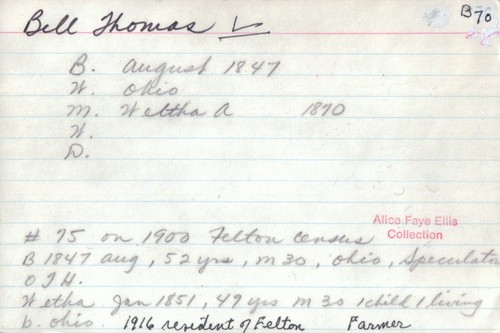 Bell Thomas
B70
B. August 1847
W. Ohio
M. Weltha A 1870
W.
D.
Alice Faye Ellis
Collection
# 75 on 1900 Felton census
B 1847 Aug, 52 yrs, m 30, Ohio, Speculator
O J H.
Wetha Jan 1851, 49 yrs m 30 1 child 1 living
b. Ohio. 1916 resident of Felton Farmer